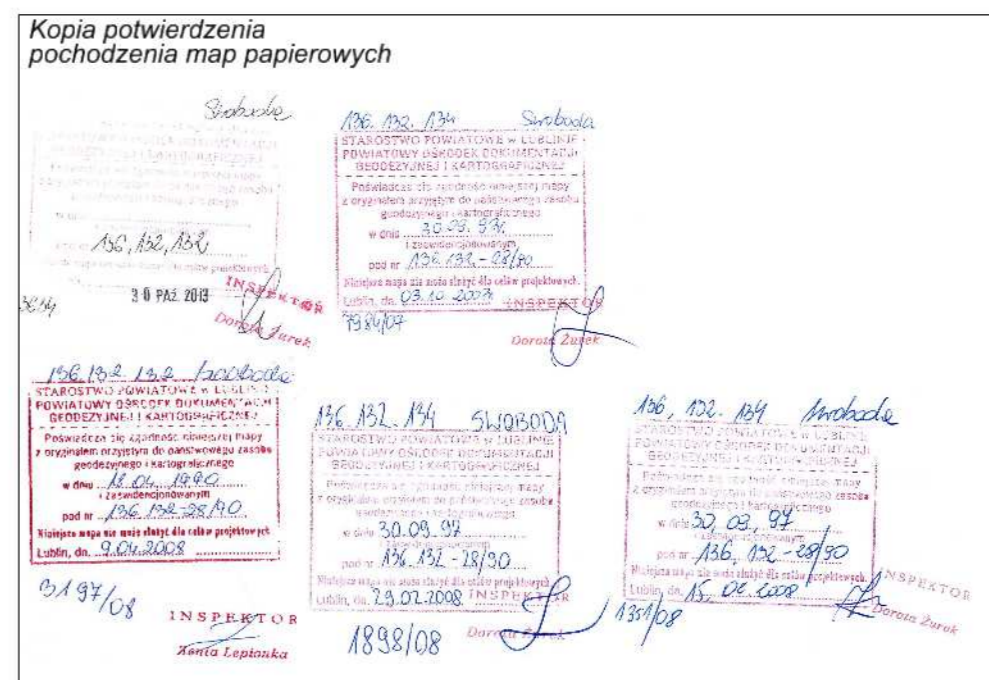 Kopia potwierdzenia
pochodzenia map papierowych
Swoboda
136, 132, 132
30 PAŹ. 2013
INSPEKTOR
Dorota Żurek
136. 132. 134 Swoboda
STAROSTWO POWIATOWE w LUBLINIE
POWIATOWY OŚRODEK DOKUMENTACJI
GEODEZYJNEJ I KARTOGRAFICZNEJ
Poświadcza się zgodność niniejszej mapy
z oryginałem przyjętym do państwowego zasobu
geodezyjnego i kartograficznego
w dniu 30.09.97r.
i zaewidencjonowanym
pod nr 136.132-28/90
Niniejsza mapa nie może służyć dla celów projektowych.
Lublin, dn. 03.10.2007r
INSPEKTOR
7984/07
Dorota Żurek
136.132.132 Swoboda
STAROSTWO POWIATOWE w LUBLINIE
POWIATOWY OŚRODEK DOKUMENTACJI
GEODEZYJNEJ I KARTOGRAFICZNEJ
Poświadcza się zgodność niniejszej mapy
z oryginałem przyjętym do państwowego zasobu
geodezyjnego i kartograficznego
w dniu 18.04.1990
i zaewidencjonowanym
pod nr 136.132-28/90
Niniejsza mapa nie może służyć dla celów projektowych
Lublin, dn. 9.04.2008
3197/08
INSPEKTOR
Lepionka
136.132.134 SWOBODA
STAROSTWO POWIATOWE w LUBLINIE
POWIATOWY OŚRODEK DOKUMENTACJI
GEODEZYJNEJ I KARTOGRAFICZNEJ
Poświadcza się zgodność niniejszej mapy
z oryginałem przyjętym do państwowego zasobu
geodezyjnego i kartograficznego
w dniu 30.09.97
i zaewidencjonowanym
pod nr 136.132-28/90
Niniejsza mapa nie może służyć dla celów projektowych.
Lublin, dn. 29.02.2008
INSPEKTOR
1898/08
Dorota Żurek
136, 132. 134 Swoboda
STAROSTWO POWIATOWE w LUBLINIE
POWIATOWY OŚRODEK DOKUMENTACJI
GEODEZYJNEJ I KARTOGRAFICZNEJ
Poświadcza się zgodność niniejszej mapy
z oryginałem przyjętym do państwowego zasobu
geodezyjnego i kartograficznego
w dniu 30, 09. 97
i zaewidencjonowanym
pod nr 136, 132-28/90
Niniejsza mapa nie może służyć dla celów projektowych.
Lublin, dn. 15, 2008
INSPEKTOR
1351/08
Dorota Żurek